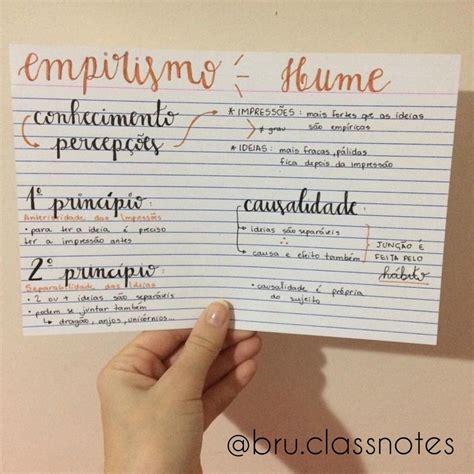 empirismo - Hume
conhecimento
percepções
* IMPRESSÕES: mais fortes que as ideias
≠ grau
são empíricas
* IDEIAS: mais fracas, pálidas
fica depois da impressão
1º princípio:
Anterioridade das Impressões
• para ter a ideia é preciso
ter a impressão antes
2º princípio:
Separabilidade das Ideias
• 2 ou + ideias são separáveis
• podem se juntar também
↳ dragão, anjos, unicórnios...
causalidade:
ideias são separáveis
∴
causa e efeito também
JUNÇÃO É
FEITA PELO
hábito
• causalidade é própria
do sujeito
@bru.classnotes